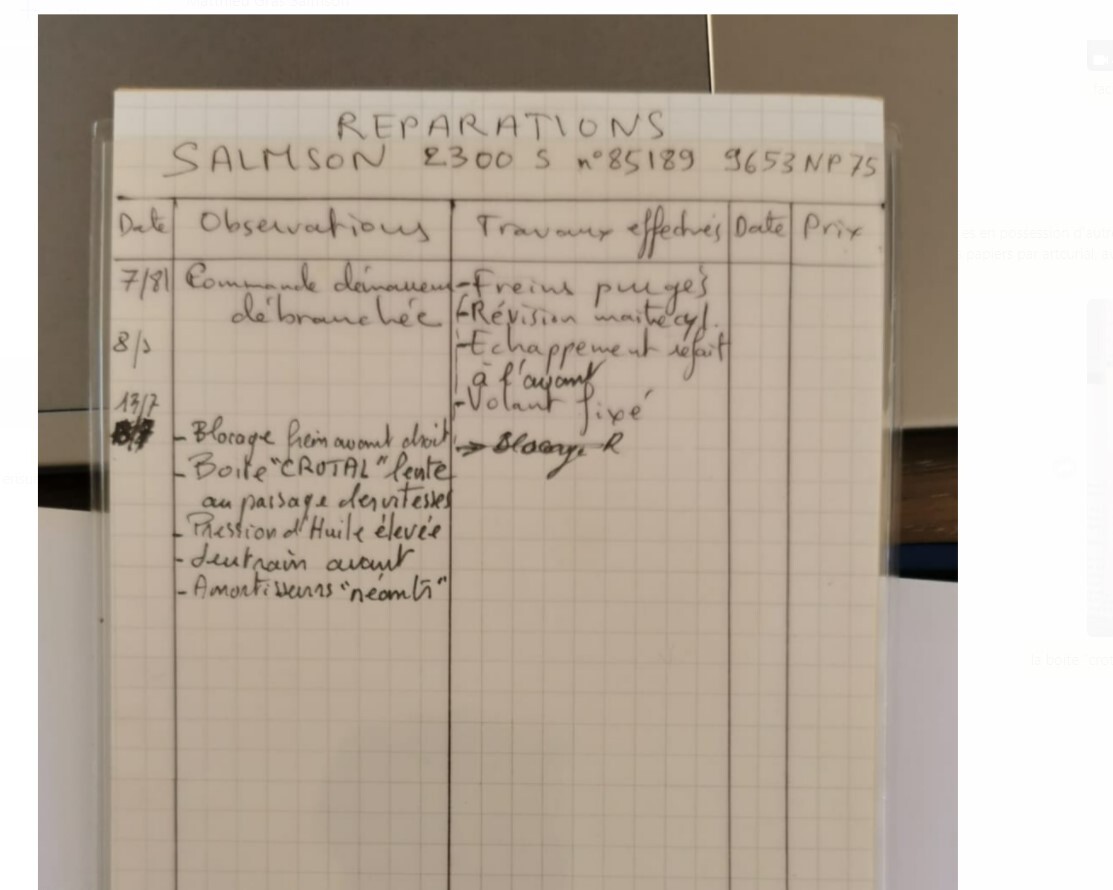 REPARATIONS
SALMSON 2300 S n°85189 9653 NP 75
Date Observations Travaux effectués Date Prix
7/81 Commande démarreur - Freins purgés
débranchée - Révision maitre cyl.
- Echappement refait
à l'avant
13/7 - Volant fixé
- Blocage frein avant droit → Blocage R
- Boite "CROTAL" lente
au passage des vitesses
- Pression d'Huile élevée
- avant
- Amortisseurs